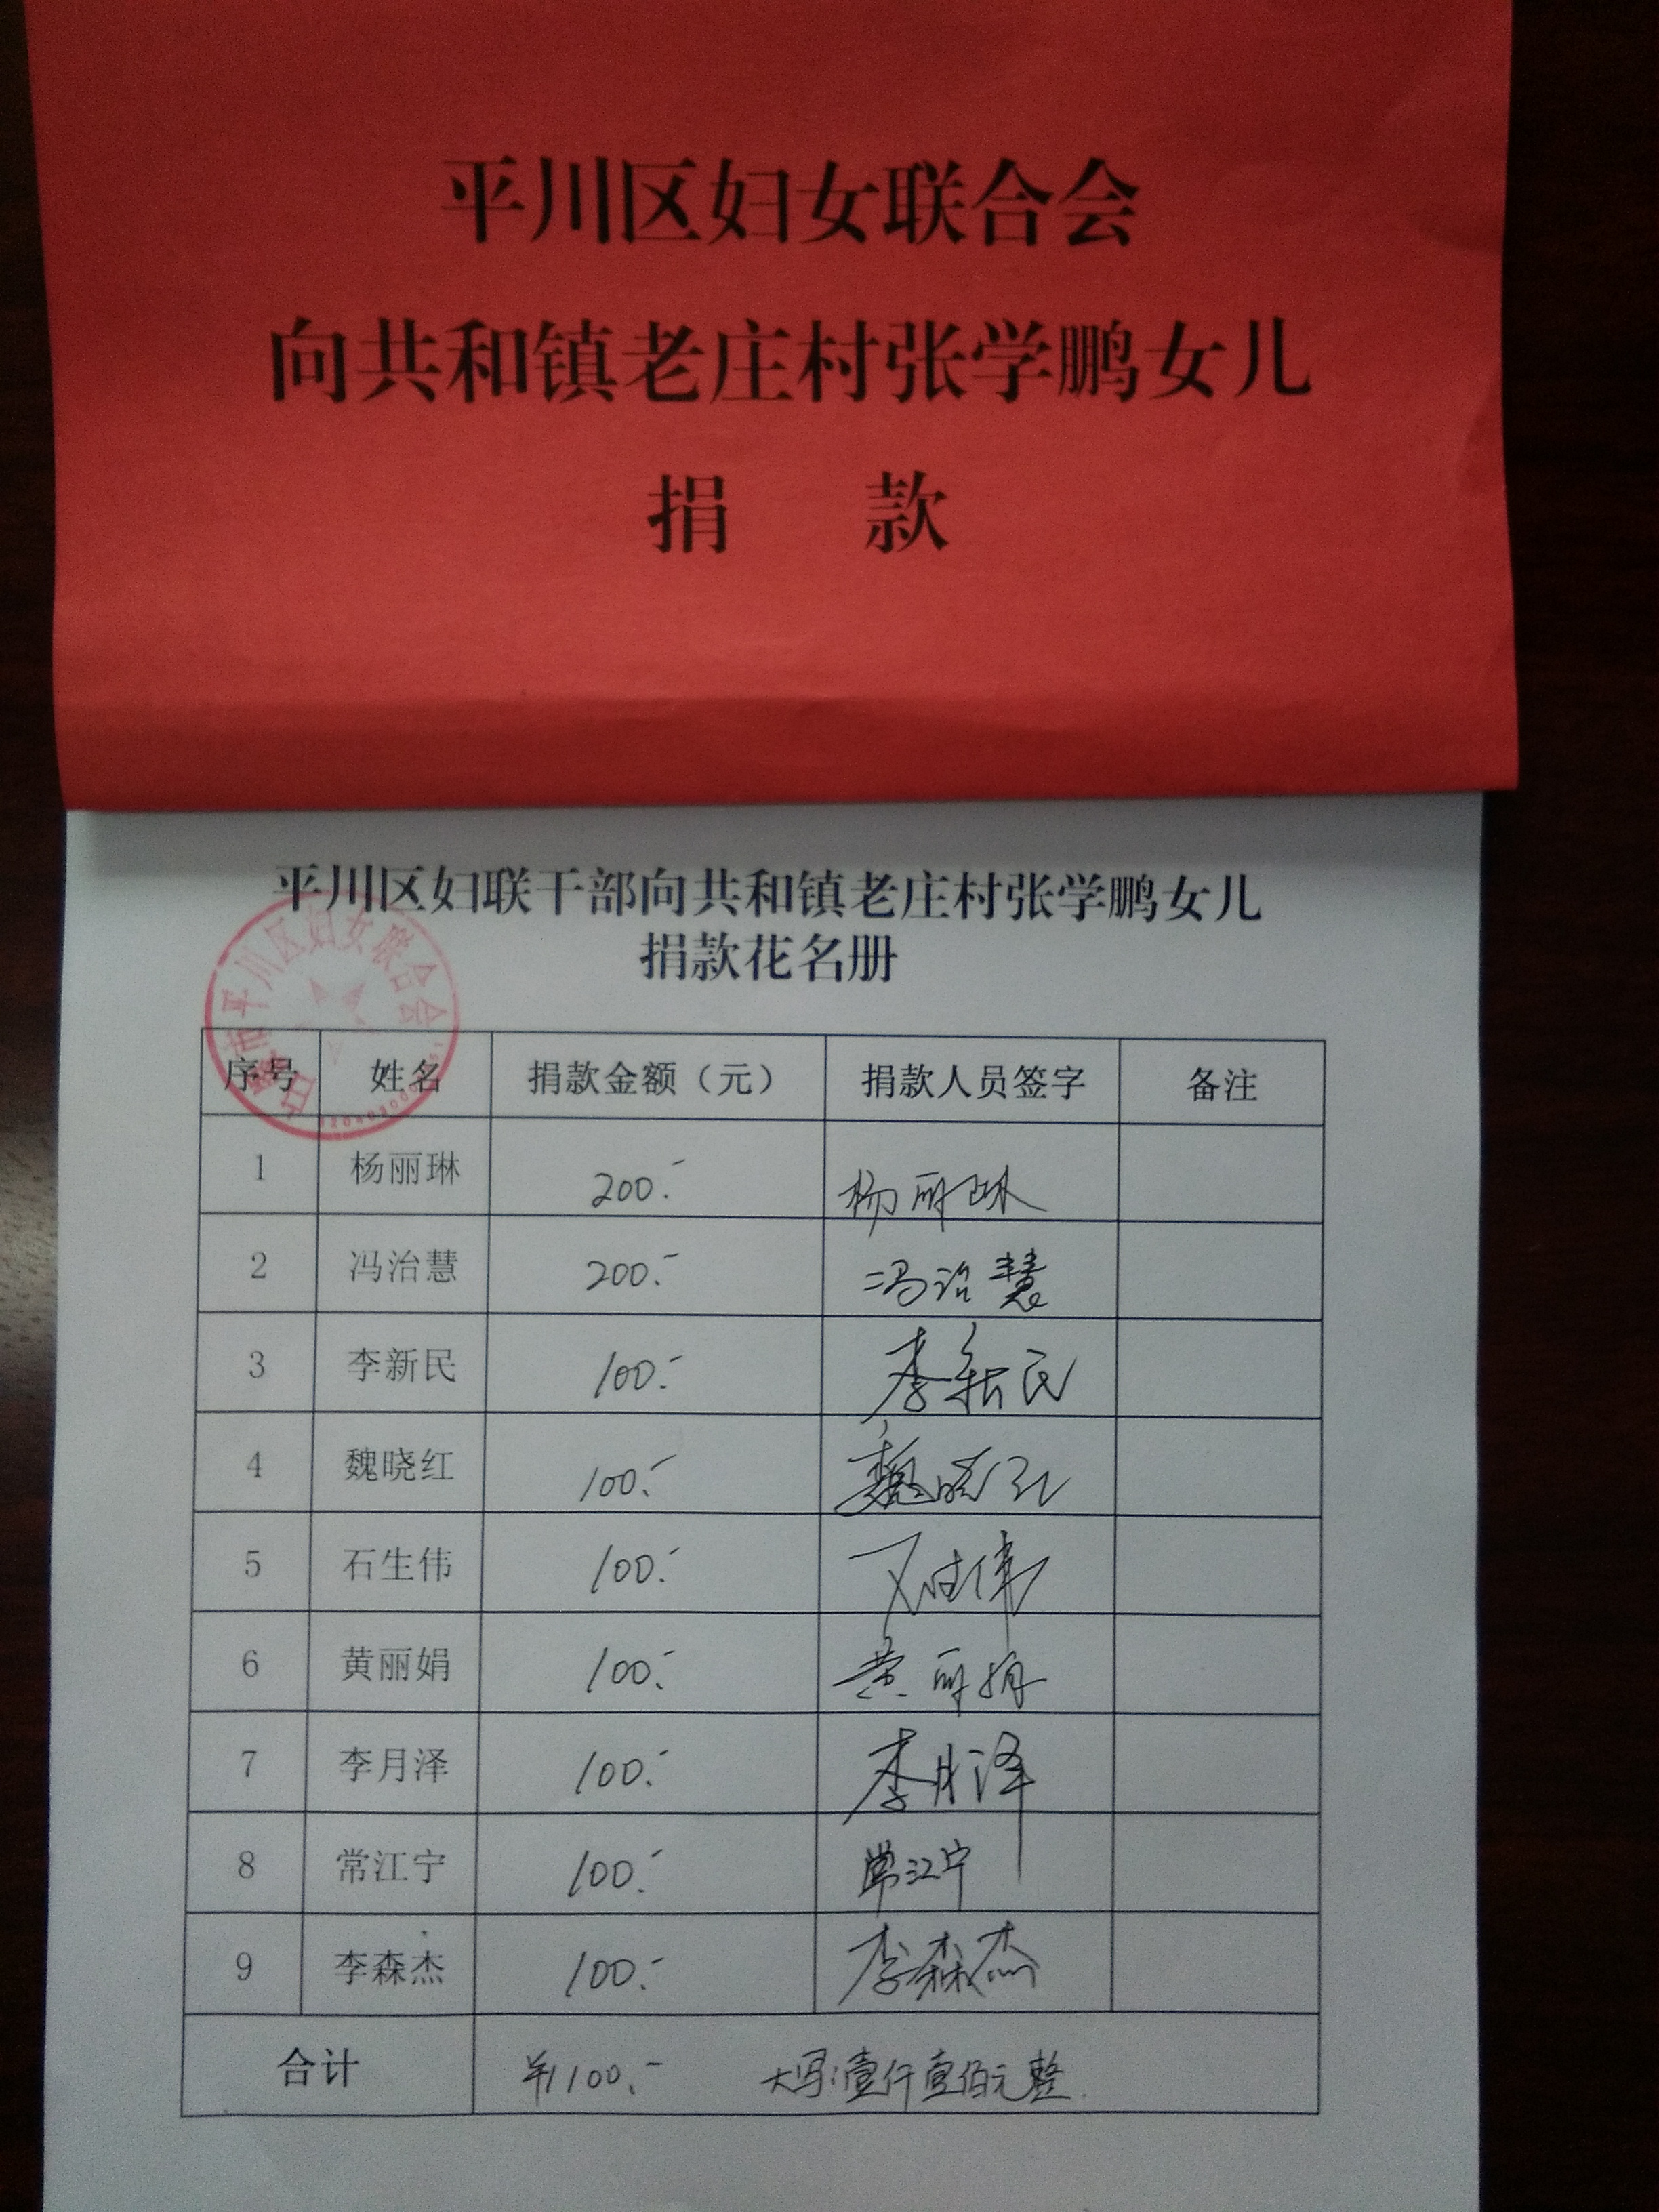 平川区妇女联合会
向共和镇老庄村张学鹏女儿
捐 款
平川区妇联干部向共和镇老庄村张学鹏女儿
捐款花名册
白银市平川区妇女联合会
序号 姓名 捐款金额（元） 捐款人员签字 备注
1 杨丽琳 200.- 杨丽琳
2 冯治慧 200.- 冯治慧
3 李新民 100.- 李新民
4 魏晓红 100.- 魏晓红
5 石生伟 100.- 石生伟
6 黄丽娟 100.- 黄丽娟
7 李月泽 100.- 李月泽
8 常江宁 100.- 常江宁
9 李森杰 100.- 李森杰
合计 ¥1100.- 大写:壹仟壹佰元整.